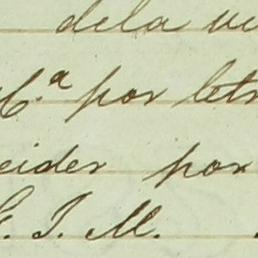 dela
C.ª por letr
eider por
G. J. M.